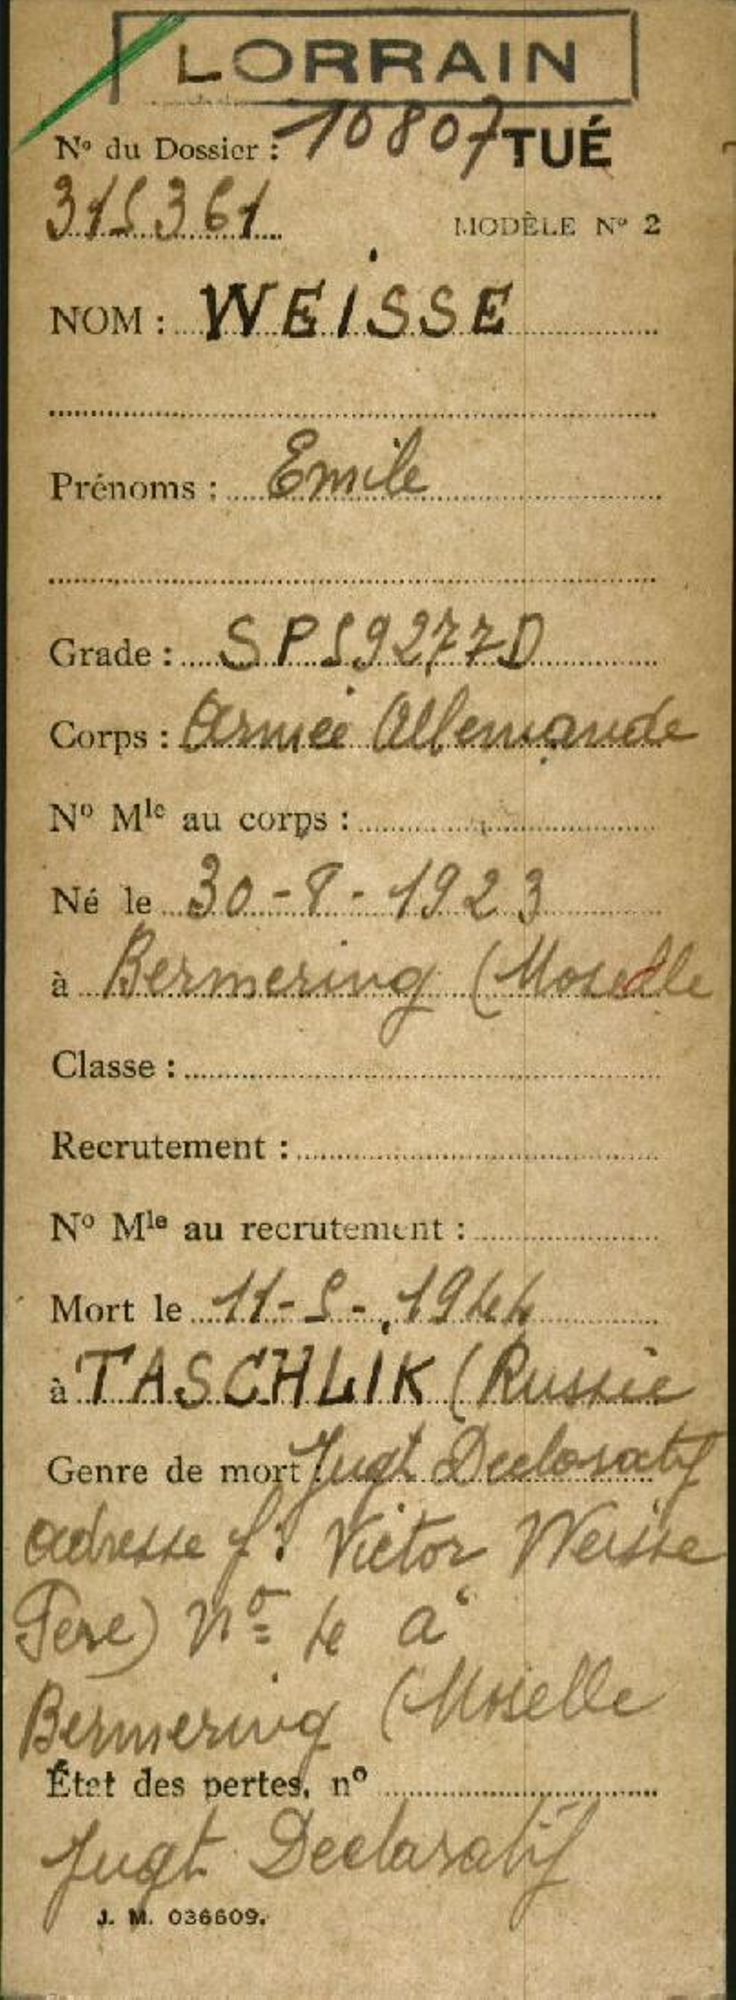 LORRAIN
N° du Dossier : 10807 TUÉ
315361
MODÈLE N° 2
NOM : WEISSE
Prénoms : Emile
Grade : SP 59277D
Corps : Armée Allemande
N° Mle au corps :
Né le 30-8-1923
à Bermering (Moselle
Classe :
Recrutement :
N° Mle au recrutement :
Mort le 11-5-1944
à TASCHLIK (Russie
Genre de mort : Jugt Declaratif
adresse f: Victor Weisse
Père) N° 4 à
Bermering (Moselle
État des pertes, n°
Jugt Declaratif
J. M. 036609.